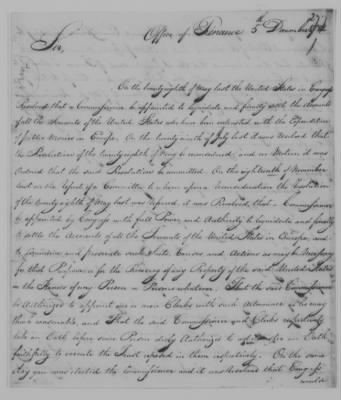 Office of Finance 5th December
Sir,
On the twenty eighth of May last the United States in Congress
Resolved that a Commissioner be appointed to liquidate and finally settle the Accounts
of all the Servants of the United States who have been entrusted with the Expenditure
of public Monies in Europe. On the twenty ninth of July last it was Resolved that
the Resolution of the twenty eighth of May be reconsidered, and on Motion it was
Ordered that the said Resolution be committed. On the eighteenth of November
last on the Report of a Committee to whom upon a reconsideration the Resolution
of the twenty eighth of May last was referred, it was Resolved, that a Commissioner
be appointed by Congress with full Power and Authority to liquidate and finally
to settle the Accounts of all the Servants of the United States in Europe, and
to commence and prosecute such Suits Causes and Actions as may be Necessary
for that Purpose or for the Recovery of any Property of the said United States
in the Hands of any Person or Persons whatsoever. That the said Commissioner
be Authorized to appoint one or more Clerks with such Allowance as he may
think reasonable, and That the said Commissioner and Clerks respectively
take an Oath before some Person duly Authorized to administer an Oath
faithfully to execute the Trust reposed in them respectively. On the same
Day you was elected the Commissioner and it was Resolved that Congress
would